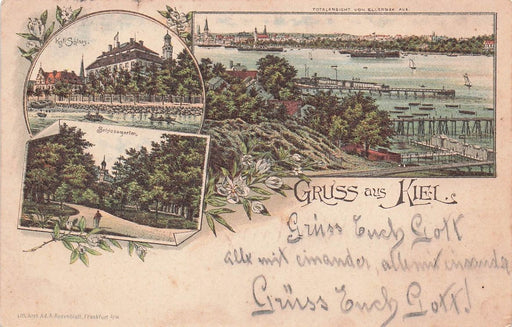 Kgl. Schloss.
TOTALANSICHT VON ELLERBEK AUS.
Schlossgarten.
GRUSS aus KIEL.
Grüss Euch Gott
alle mit einander, alle mit
Grüss Euch Gott!
Lith. Anst. Ad. A. Rosenblatt, Frankfurt a/M